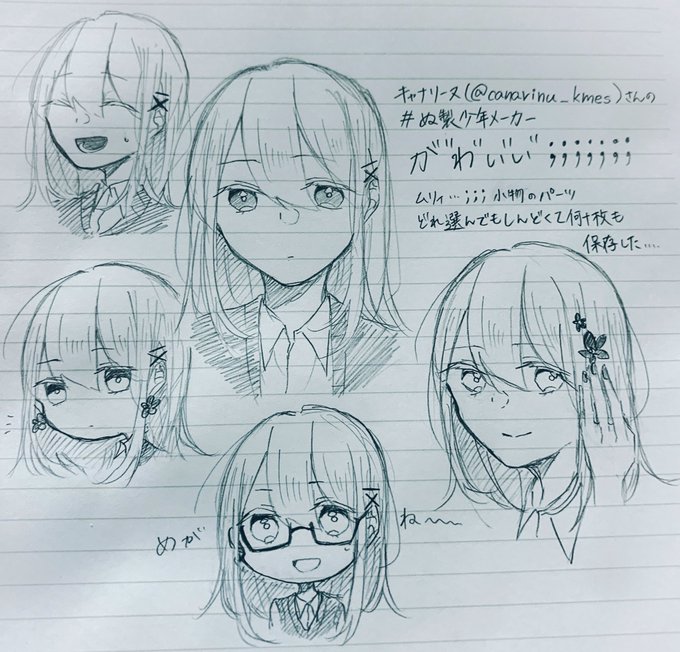 キャナリーヌ(@canarinu_kmes)さんの
#ぬ製少年メーカー
がわいい;;;;;;;
ムリィ…;;;小物のパーツ
どれ選んでもしんどくて何十枚も
保存した….
めが
ね〜〜